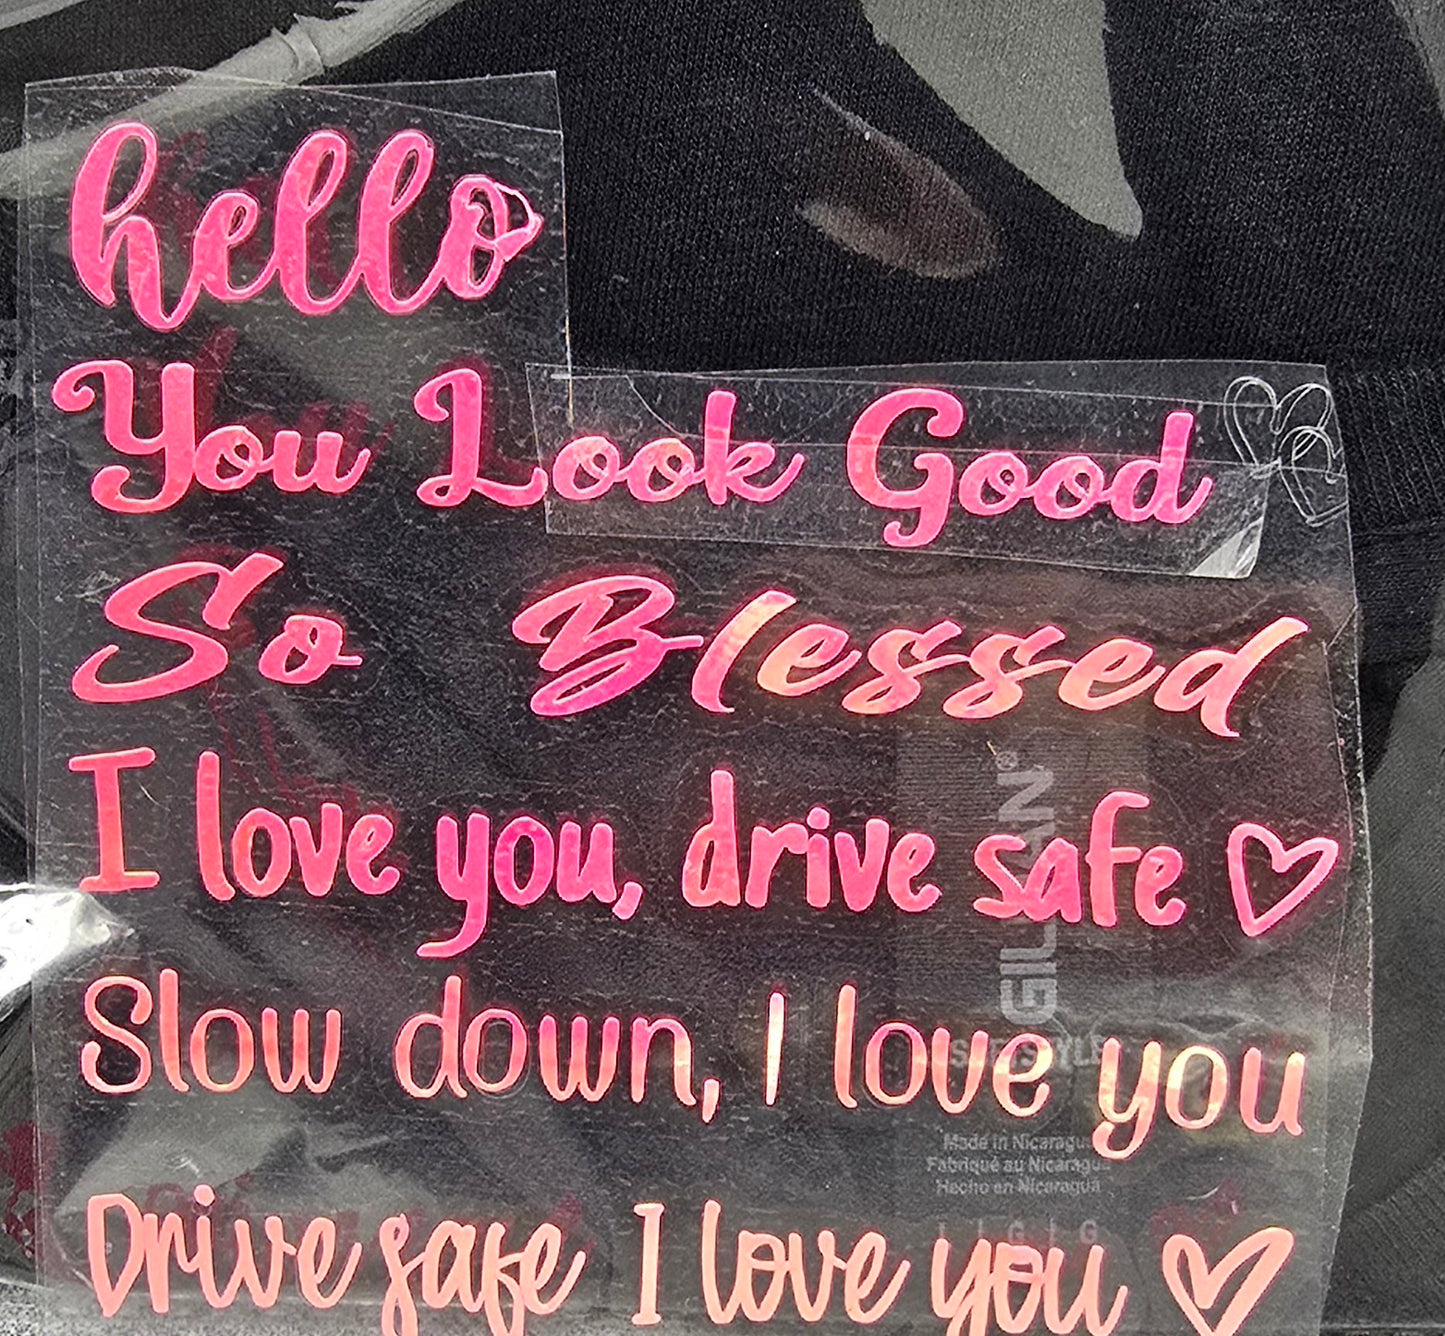 hello
You Look Good
So Blessed
I love you, drive safe
GILDAN®
Slow down, I love you
Made in Nicaragua
Fabriqué au Nicaragua
Hecho en Nicaragua
Drive safe I love you